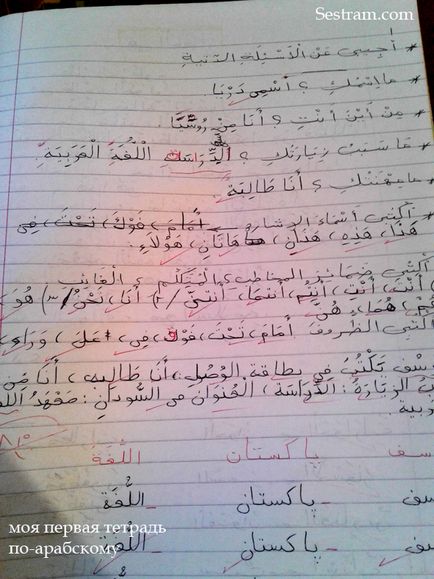 Sestram.com
١
* أَجِيبِي عَنْ الْأَسْئِلَةِ الآتِيَةِ
* مَا اسْمُكِ ؟ اسْمِي دَرْيَا
* مِنْ أَيْنَ أَنْتِ ؟ أَنَا مِنْ رُوسِيَّا
* مَا سَبَبُ زِيَارَتِكِ ؟ الدِّرَاسَة اللُّغَةِ الْعَرَبِيَةِ.
* مَا مِهْنَتُكِ ؟ أَنَا طَالِبَة
* اُكْتُبِي أَسْمَاءَ الإِشَارَة أَمَامَ، فَوْكَ، تَحْتَ، فِي
هَذَا، هَذِهِ، هَذَانِ، هَاتَانِ، هَؤُلَاءِ.
اُكْتُبِي ضَمَائِرَ المخاطب، المتكلم، الْغَائِب
أَنْتَ، أَنْتِ، أَنْتُم، أَنْتُمَا، أَنْتُنَّ /٢) أَنَا، نَحْنُ /٣) هُوَ
هُمْ، هُمَا، هُنَّ
اكتبي الظروف أَمَامَ، تَحْتَ، فَوْكَ، فِي، عَلَ، وَرَاءَ
تَكْتُبُ فِي بطاقة الوُصُلِ، أَنَا طَالِبه، أَنَا مِن
الزِيَارَةُ: الدِّرَاسَة، الْعُنْوَان فِي السُّودَانِ: مَعْهَدُ اللغ
ربيه
سف پاكستان اللُّغَةَ
سف - پاكستان - اللُّغَة
سف - پاكستان - اللُّغَة
моя первая тетрадь
по-арабскому